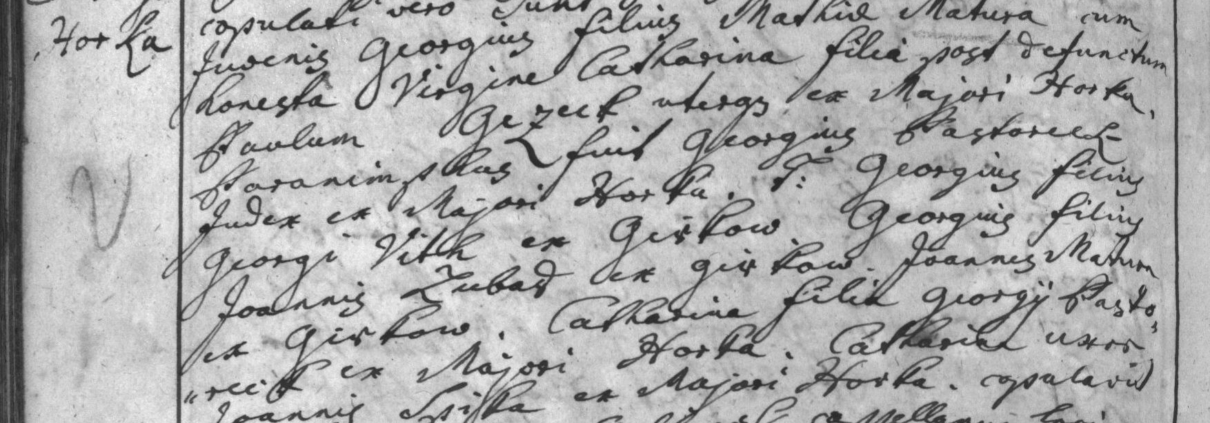 Horka
copulati vero sunt
Juvenis Georgius filius Mathiæ Matura cum
honesta Virgine Catharina filia post defunctum
Paulum Gezeck uterqs ex Majori Horka.
Paranimphus fuit Georgius Pastoreck
Judex ex Majori Horka. T: Georgius filius
Georgi Vith ex Girkow Georgius filius
Joannis Zubad ex Girkow. Joannes Matura
ex Girkow. Catharina filia Georgÿ Pasto,
"recik ex Majori Horka. Catharina uxor
Joannis Spiska ex Majori Horka. copulavit